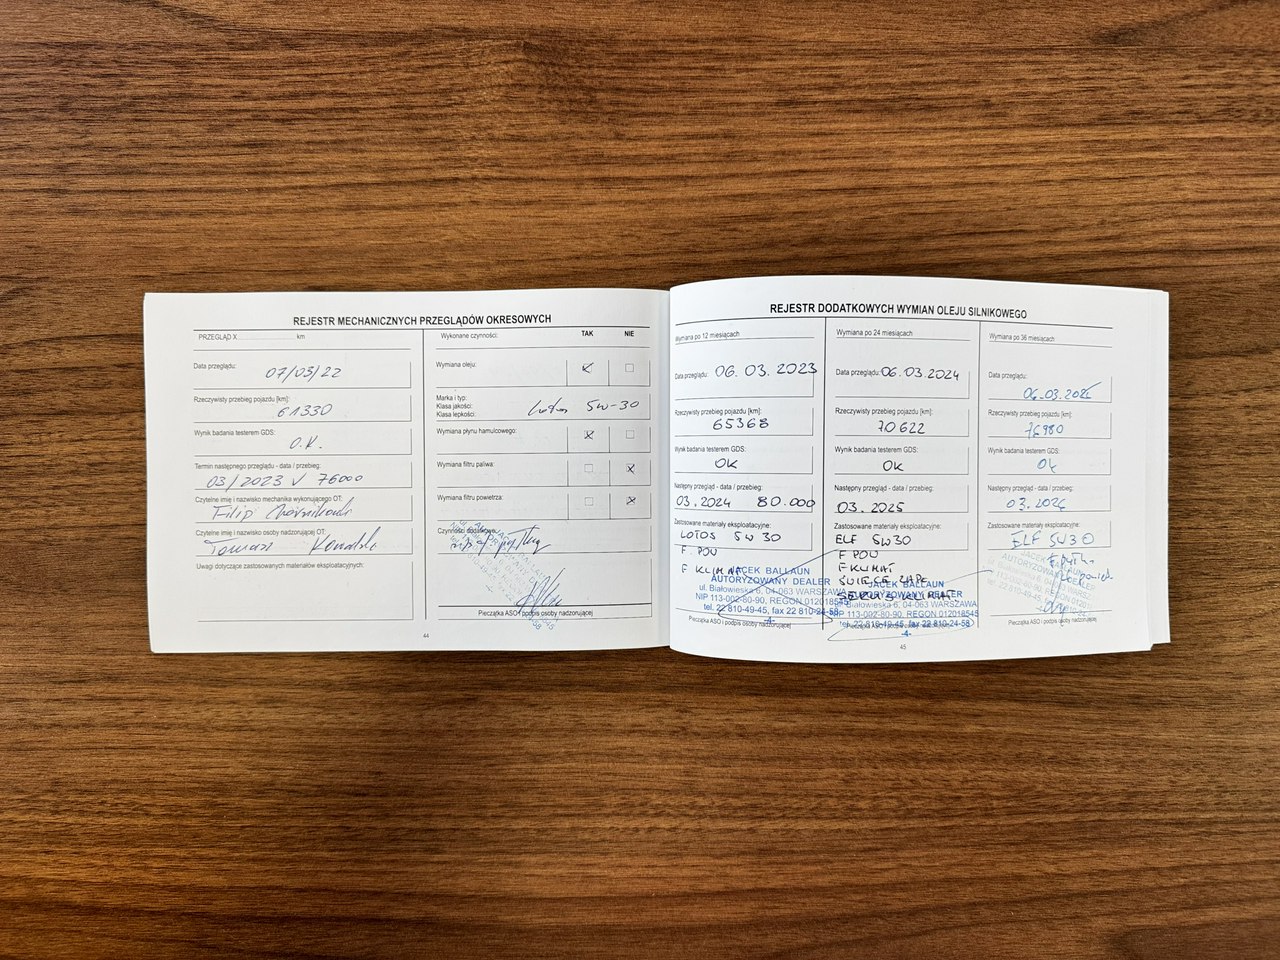 REJESTR MECHANICZNYCH PRZEGLĄDÓW OKRESOWYCH
PRZEGLĄD X km
Data przeglądu:
07/03/22
Rzeczywisty przebieg pojazdu [km]:
61330
Wynik badania testerem GDS:
O.K.
Termin następnego przeglądu - data / przebieg:
03/2023 V 76000
Czytelne imię i nazwisko mechanika wykonującego OT:
Filip
Czytelne imię i nazwisko osoby nadzorującej OT:
Tomasz Kowalski
Uwagi dotyczące zastosowanych materiałów eksploatacyjnych:
Wykonane czynności: TAK NIE
Wymiana oleju:
Marka i typ:
Klasa jakości:
Klasa lepkości:
Lotos 5w-30
Wymiana płynu hamulcowego:
Wymiana filtru paliwa:
Wymiana filtru powietrza:
Czynności dodatkowe:
Pieczątka ASO i podpis osoby nadzorującej
44
REJESTR DODATKOWYCH WYMIAN OLEJU SILNIKOWEGO
Wymiana po 12 miesiącach
Data przeglądu: 06.03.2023
Rzeczywisty przebieg pojazdu [km]:
65368
Wynik badania testerem GDS:
OK
Następny przegląd - data / przebieg:
03.2024 80.000
Zastosowane materiały eksploatacyjne:
LOTOS 5W30
F POW
F KLIMA
JACEK BALLAUN
AUTORYZOWANY DEALER
ul. Białowieska 6, 04-063 WARSZAWA
NIP 113-002-80-90, REGON 012018545
tel. 22 810-49-45, fax 22 810-24-58
-4-
Pieczątka ASO i podpis osoby nadzorującej
Wymiana po 24 miesiącach
Data przeglądu: 06.03.2024
Rzeczywisty przebieg pojazdu [km]:
70622
Wynik badania testerem GDS:
OK
Następny przegląd - data / przebieg:
03.2025
Zastosowane materiały eksploatacyjne:
ELF 5W30
F POW
F KLIMAT
ŚWIECE ZAPŁ
SERWIS KLIMAT
JACEK BALLAUN
AUTORYZOWANY DEALER
Białowieska 6, 04-063 WARSZAWA
NIP 113-002-80-90, REGON 012018545
tel. 22 810-49-45, fax 22 810-24-58
-4-
Pieczątka ASO i podpis osoby nadzorującej
Wymiana po 36 miesiącach
Data przeglądu:
06.03.2025
Rzeczywisty przebieg pojazdu [km]:
76980
Wynik badania testerem GDS:
OK
Następny przegląd - data / przebieg:
03.2026
Zastosowane materiały eksploatacyjne:
ELF 5W30
JACEK BALLAUN
AUTORYZOWANY DEALER
Pieczątka ASO i podpis osoby nadzorującej
45